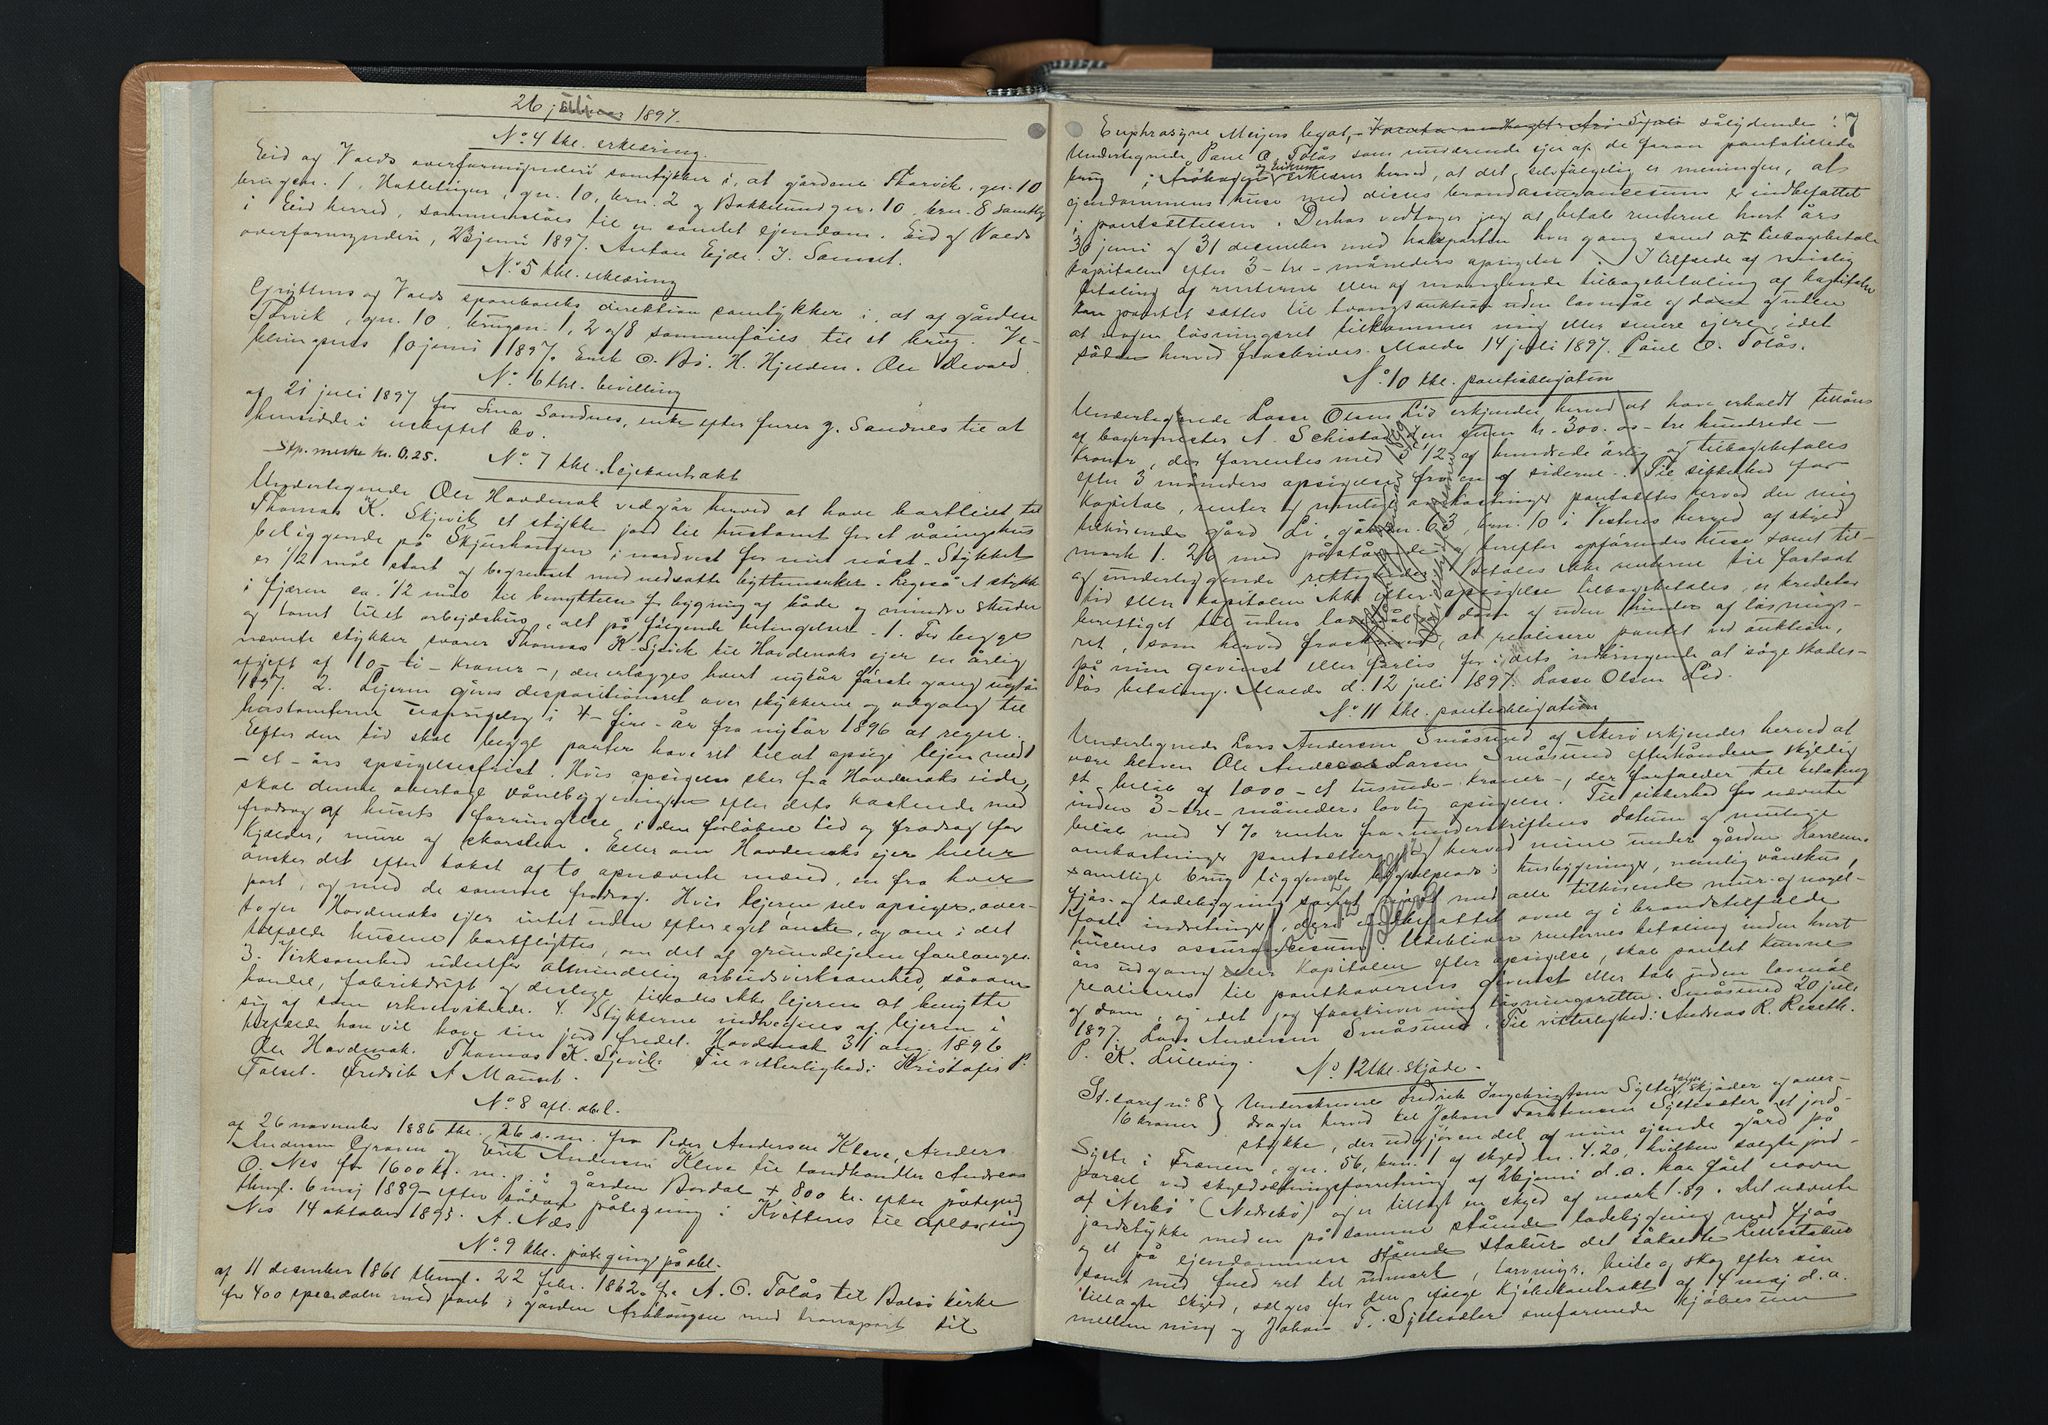 26 juli 1897.
No 4 thl. erklæring.
Eid og Volds overformynderi samtykker i, at gårdene Thorvik, gn. 10
brugsn. 1, Halletrøen, gn. 10, brn. 2 og Bakkelund gn. 10, brn. 8 samtlige
i Eid herred, sammenføies til en samlet ejendom. Eid og Volds
overformynderi, 23 juni 1897. Anton Eide. I. Samset.
No 5 thl. erklæring
Gryttens og Volds sparebanks direktion samtykker i, at af gården
Torvik, gn. 10, brugsn. 1, 2 og 8 sammenføies til et brug. Ve-
blungsnes 10 juni 1897. Erik O. Bø. H. Hjelden. Ole Devold.
No 6 thl. bevilling
af 21 juli 1897 for Ima Sandnes, enke efter fører J. Sandnes til at
hensidde i uskiftet bo.
Stp. merke kr. 0.25. No 7 thl. lejekontrakt
Undertegnede Ole Hovdenak vedgår herved at have bortleiet til
Thomas K. Skjevik et stykke jord til hustomt for et våningshus
beliggende på Skjurhaugen i nordvest for mit nøst. Stykket
er 1/2 mål stort og begrenset med nedsatte byttemerker. Ligeså et stykke
i fjæren ca. 1/2 mål til benyttelse for bygning af både og mindre skuder
og tomt til et arbejdshus, alt på følgende betingelser. 1. For begge
nævnte stykker svarer Thomas K. Sjevik til Hovdenaks ejer en årlig
afgift af 10 – ti – kroner –, der erlægges hvert nytår første gang nytår
1897. 2. Lejeren gives dispositionsret over stykkerne og adgang til
hustomterne uopsigelig i 4 – fire – år fra nytår 1896 at regne.
Efter den tid skal begge parter have ret til at opsige lejen med 1
– et – års opsigelsesfrist. Hvis opsigelsen sker fra Hovdenaks side,
skal denne overtage vånebygningen efter dets kostende med
fradrag af husets forringelse i den forløbne tid og fradrag for
kjelder, mure og skorsten. Eller om Hovdenaks ejer heller
ønsker det efter takst af to opnævnte mænd, en fra hver
part, og med de samme fradrag. Hvis lejeren selv opsiger, over-
tager Hovdenaks ejer intet uden efter eget ønske, og om i det
tilfælde husene bortflyttes, om det af grundejeren forlanges.
3. Virksomhed udenfor almindelig arbeidsvirksomhed, såsom
handel, fabrikdrift og deslige tillades ikke lejeren at benytte
sig af som erhvervskilde. 4. Stykkerne indhegnes af lejeren i
tilfælde han vil have sin jord fredet. Hovdenak 31 aug. 1896
Ole Hovdenak. Thomas K. Sjevik. Til vitterlighed: Kristofer P.
Tolset. Fredrik A Mauset.
No 8 afl. obl.
af 26 november 1886 thl. 26 s. m. fra Peder Andersen Kleve, Anders
Andersen Groven og Erik Andersen Kleve til landhandler Andreas
O. Nes for 1600 kr. m. p. i gården Bordal + 800 kr. efter påtegning
thingl. 6 maj 1889 – efter sådan påtegning: Kvitteres til aflæsning
Nes 14 oktober 1895. A. Næs.
No 9 thl. påtegning på obl.
af 11 december 1861 thingl. 22 febr. 1862 fra A. O. Tolås til Bolsø kirke
for 400 speciedaler med pant i gården Årøhaugen med transport til
7
Euphrosyne Meijers legat, sålydende:
Undertegnede Paul O. Tolås som nuværende ejer af de foran pantstillede
brug i Årøhaugen og erklærer herved, at det selvfølgelig er meningen, at
ejendommens huse med disses brandassurancesum er indbefattet
i pantsættelsen. Derhos vedtager jeg at betale renterne hvert års
30 juni og 31 desember med halvparten hver gang samt at tilbagebetale
kapitalen efter 3 – tre – måneders opsigelse. I tilfælde af uvislig
betaling af renterne eller af manglende tilbagebetaling af kapitalen
kan pantet sættes til tvangsauktion uden lovmål og dom og uden
at nogen løsningsret tilkommer mig eller senere ejere, idet
sådan herved fraskrives. Molde 14 juli 1897. Paul O. Tolås.
No 10 thl. pantobligation
Undertegnede Lasse Olsen Lid erkjender herved at have erholdt tillåns
af bagermester A. Schistad den sum kr. 300.00 – tre hundrede –
kroner, der forrentes med 4 1/2 af hundrede årlig og tilbagebetales
efter 3 måneders opsigelse fra en af siderne. Til sikkerhed for
kapital, renter og mulige omkostninger pantsættes herved den mig
tilhørende gård Li, gårdsn. 63, brn. 10 i Vestnes herred af skyld
mark 1. 26 med påstående og herefter opførendes huse samt til-
og underliggende rettigheder. Betales ikke renterne til fastsat
tid eller kapitalen ikke efter opsigelse tilbagebetales, er kreditor
berettiget til uden lovmål og dom og uden hinder af løsnings-
ret, som herved fraskrives, at realisere pantet ved auktion,
på min gevinst eller forlis for i dets indbringende at søge skades-
løs betaling. Molde d. 12 juli 1897. Lasse Olsen Lid.
No 11 thl. pantobligation
Undertegnede Lars Andersen Småsund af Akerø erkjender herved at
være bleven Ole Andreas Larsen Småsund efterhånden skyldig
et beløb af 1000 – et tusinde – kroner –, der forfalder til betaling
inden 3 – tre – måneders lovlig opsigelse. Til sikkerhed for nævnte
beløb med 4 % renter fra underskriftens datum og mulige
omkostninger pantsætter jeg herved mine under gården Horrems
samtlige brug liggende husbygninger, nemlig vånehus,
fjøs- og ladebygning samt nøst med alle tilhørende mur- og nagel-
faste indretninger, deri indbefattet ovne og i brandstilfælde
husenes assurancesum. Udebliver renternes betaling inden hvert
års udgang eller kapitalen efter opsigelse, skal pantet kunne
realiseres til panthaverens gevinst eller tab uden lovmål
og dom, og idet jeg fraskriver mig løsningsretten. Småsund 20 juli
1897. Lars Andersen Småsund. Til vitterlighed: Andreas R. Reseth.
P. K. Lillevig.
No 12 thl. skjøde.
St. taref no. 8 } Underskrevne Fredrik Ingebrigtsen Sylte sælger, skjøder og over-
16 kroner } drager herved til Johan Torstensen Syltesæter et jord-
stykke, der udgjør en del af min ejende gård på
Sylte i Frænen, gn. 56, brn. 1 af skyld m. 4.20, hvilken solgte jord-
parsel ved skyldsætningsforretning af 26 juni d. a. har fået navn
af "Nerbø" (Nedrebø) og er tillagt en skyld af mark 1.89. Det nævnte
jordstykke med en på samme stående ladebygning med fjøs
og et på ejendommen stående stabur det såkaldte
samt med fuld ret til udmark, torvmyr, beite og skog efter sin
tillagte skyld, sælges for den ifølge kjøbekontrakt af 4 maj d. a.
mellem mig og Johan T. Syltesæter omforenede kjøbesum